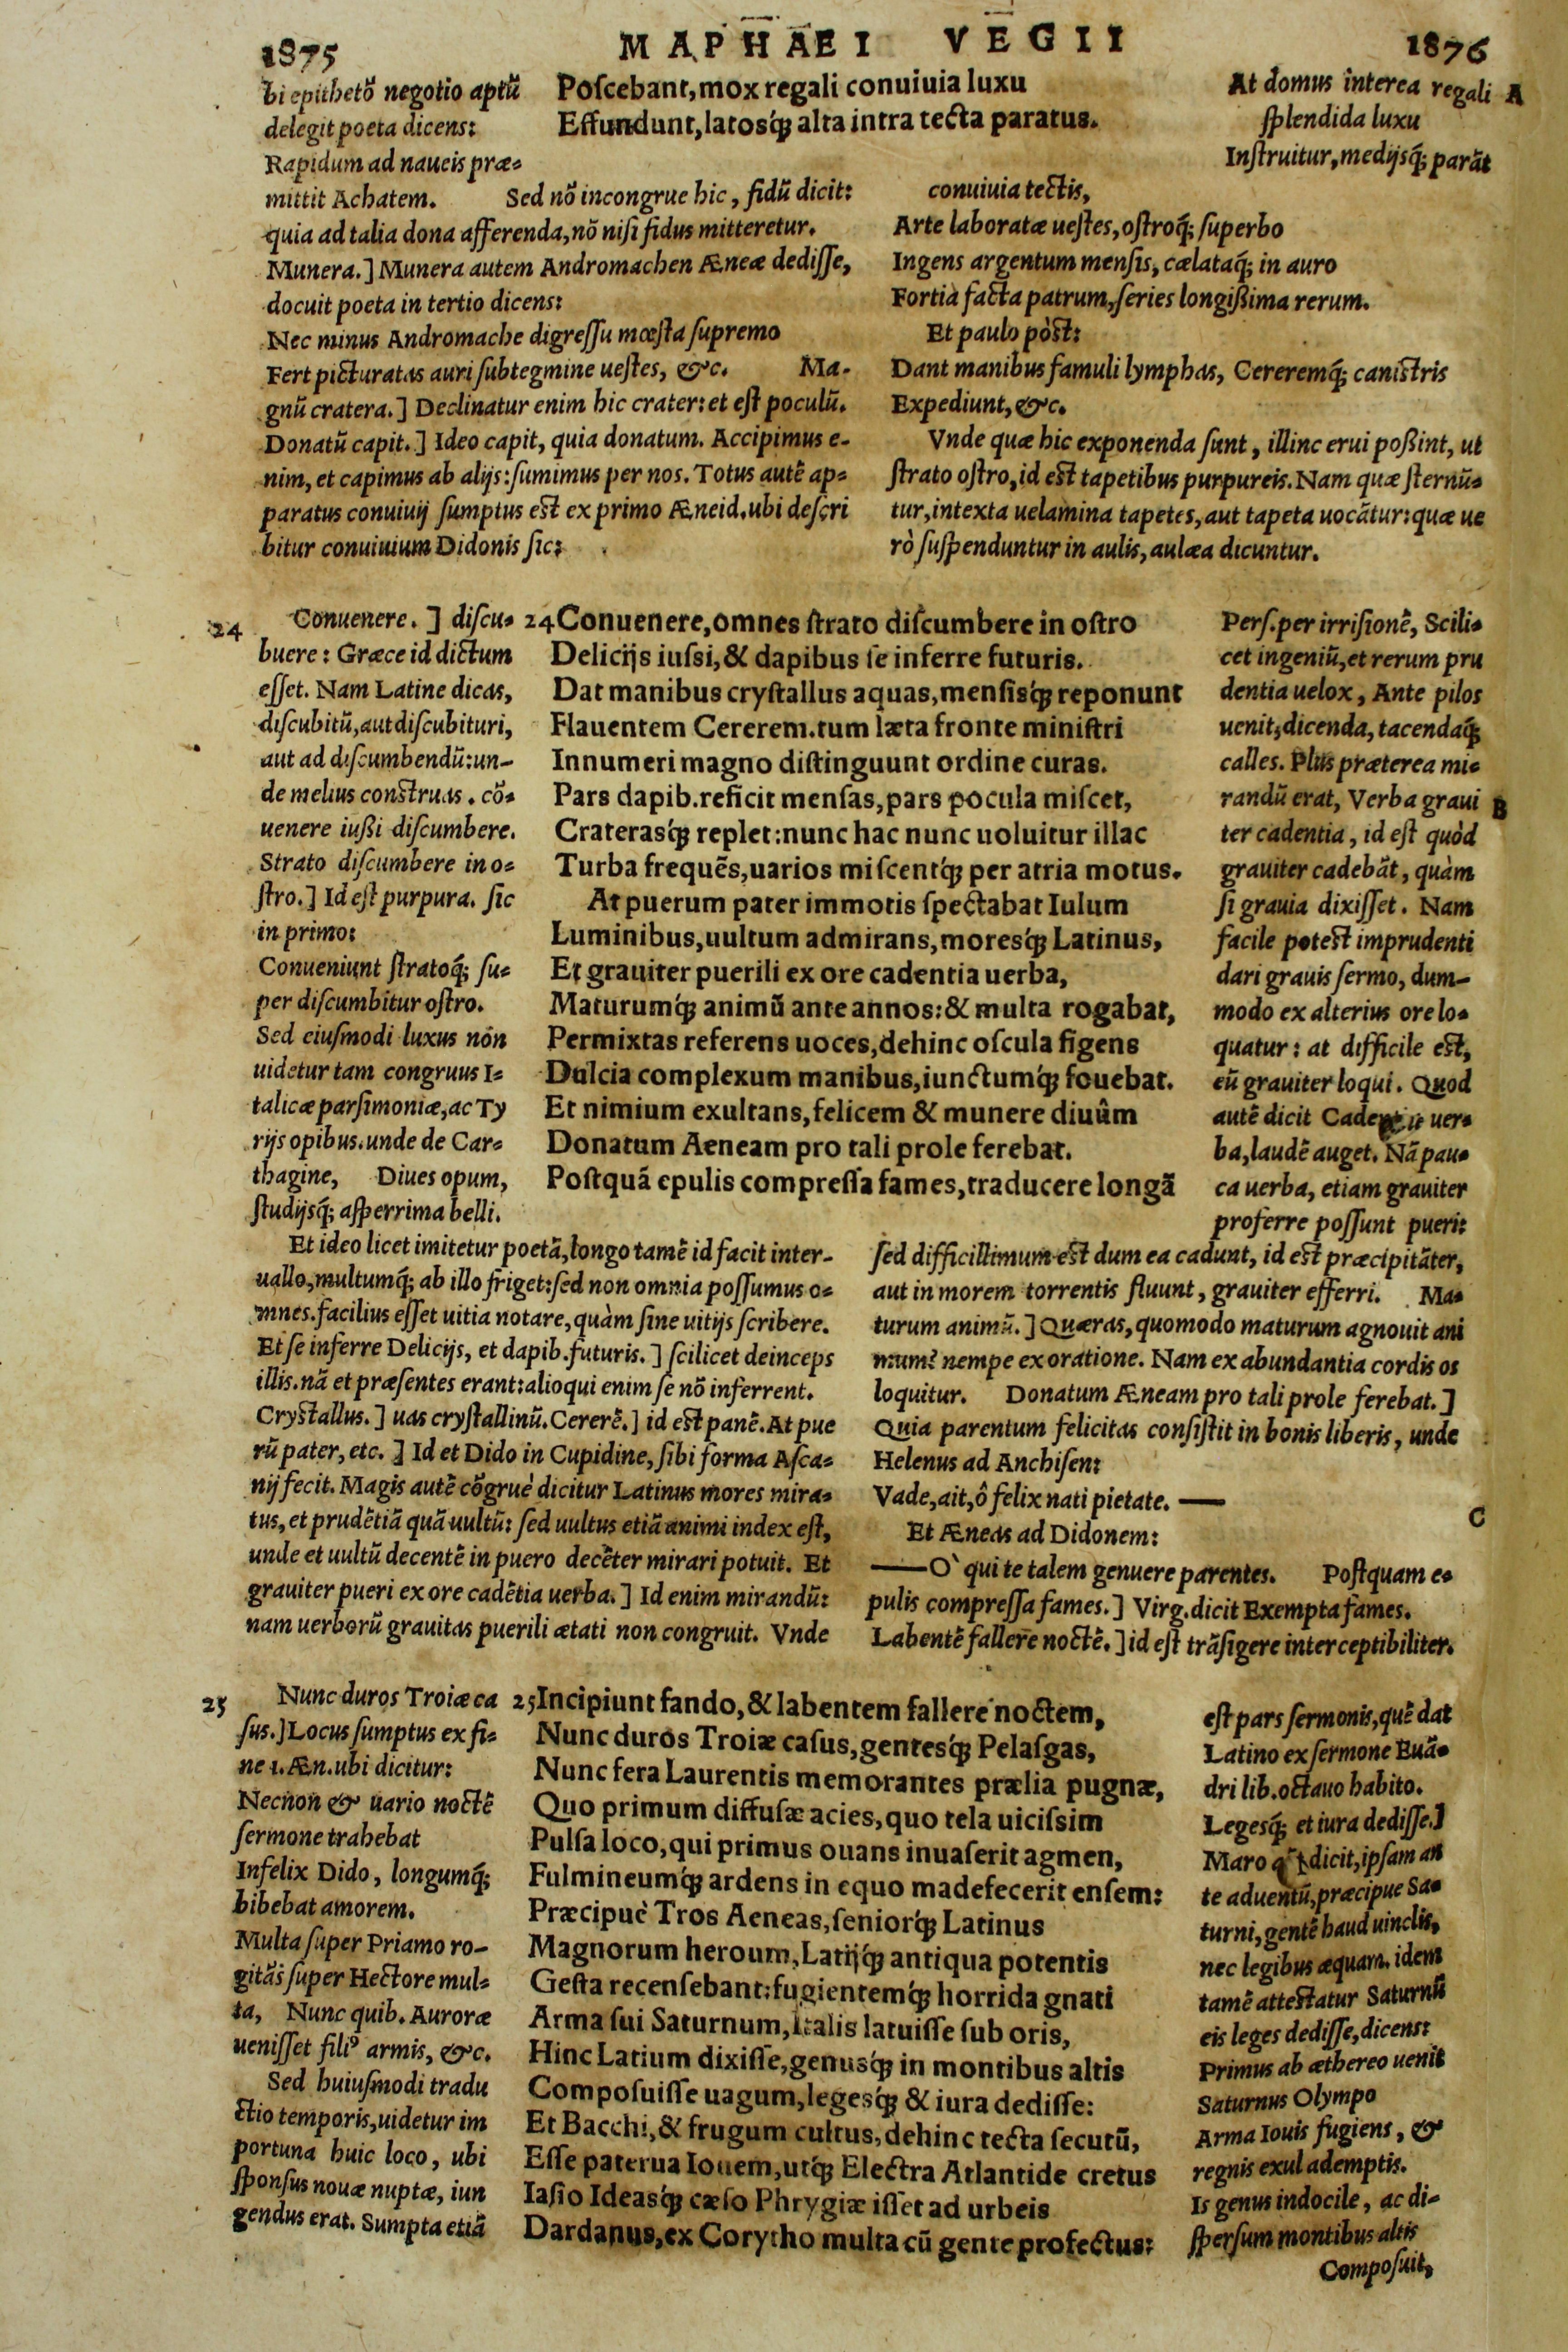 1875 MAPHAEI VEGII 1876
bi epithetō negotio aptū
delegit poeta dicens:
Rapidum ad naueis præ-
Poſcebant, mox regali conuiuia luxu
Effundunt, latosq́; alta intra tecta paratus.
At domus interea regali A
ſplendida luxu
Inſtruitur, medijsq́; parāt
mittit Achatem. Sed nō incongrue hic, fidū dicit:
quia ad talia dona afferenda, nō niſi fidus mitteretur.
Munera.] Munera autem Andromachen Æneæ dediſſe,
docuit poeta in tertio dicens:
Nec minus Andromache digreſſu mœſta ſupremo
Fert picturatas auri ſubtegmine ueſtes, &c. Ma-
gnū cratera.] Declinatur enim hic crater: et eſt poculū.
Donatū capit.] Ideo capit, quia donatum. Accipimus e-
nim, et capimus ab alijs: ſumimus per nos. Totus autē ap-
paratus conuiuij ſumptus eſt ex primo Æneid. ubi deſcri
bitur conuiuium Didonis ſic:
conuiuia tectis,
Arte laboratæ ueſtes, oſtroq́; ſuperbo
Ingens argentum menſis, cælataq́; in auro
Fortia facta patrum, ſeries longißima rerum.
Et paulo pòſt:
Dant manibus famuli lymphas, Cereremq́; caniſtris
Expediunt, &c.
Vnde quæ hic exponenda ſunt, illinc erui poßint, ut
ſtrato oſtro, id eſt tapetibus purpureis. Nam quæ ſternū-
tur, intexta uelamina tapetes, aut tapeta uocātur: quæ ue
rò ſuſpenduntur in aulis, aulæa dicuntur.
24 Conuenere.] diſcu-
buere: Græce id dictum
eſſet. Nam Latine dicas,
diſcubitū, aut diſcubituri,
aut ad diſcumbendū: un-
de melius conſtruas. cō-
uenere iußi diſcumbere.
Strato diſcumbere in o-
ſtro.] Id eſt purpura. ſic
in primo:
Conueniunt ſtratoq́; ſu-
per diſcumbitur oſtro.
Sed eiuſmodi luxus nōn
uidetur tam congruus I-
talicæ parſimoniæ, ac Ty
rijs opibus. unde de Car-
thagine, Diues opum,
ſtudijsq́; aſperrima belli.
24 Conuenere, omnes ſtrato diſcumbere in oſtro
Delicijs iuſsi, & dapibus ſe inferre futuris.
Dat manibus cryſtallus aquas, menſisq́; reponunt
Flauentem Cererem. tum læta fronte miniſtri
Innumeri magno diſtinguunt ordine curas.
Pars dapib. reficit menſas, pars pocula miſcet,
Craterasq́; replet: nunc hac nunc uoluitur illac
Turba frequēs, uarios miſcentq́; per atria motus.
At puerum pater immotis ſpectabat Iulum
Luminibus, uultum admirans, moresq́; Latinus,
Et grauiter puerili ex ore cadentia uerba,
Maturumq́; animū ante annos: & multa rogabat,
Permixtas referens uoces, dehinc oſcula figens
Dulcia complexum manibus, iunctumq́; fouebat.
Et nimium exultans, felicem & munere diuûm
Donatum Aeneam pro tali prole ferebat.
Poſtquā epulis compreſſa fames, traducere longā
Perſ. per irriſionē, Scili-
cet ingeniū, et rerum pru
dentia uelox, Ante pilos
uenit, dicenda, tacendaq́;
calles. Plus præterea mi-
randū erat, Verba graui B
ter cadentia, id eſt quòd
grauiter cadebāt, quàm
ſi grauia dixiſſet. Nam
facile poteſt imprudenti
dari grauis ſermo, dum-
modo ex alterius ore lo-
quatur: at difficile eſt,
eū grauiter loqui. Quod
autē dicit Cadentia uer-
ba, laudē auget. Nā pau-
ca uerba, etiam grauiter
proferre poſſunt pueri:
Et ideo licet imitetur poetā, longo tamē id facit inter-
uallo, multumq́; ab illo friget: ſed non omnia poſſumus o-
mnes. facilius eſſet uitia notare, quàm ſine uitijs ſcribere.
Et ſe inferre Delicijs, et dapib. futuris.] ſcilicet deinceps
illis. nā et præſentes erant: alioqui enim ſe nō inferrent.
Cryſtallus.] uas cryſtallinū. Cererē.] id eſt panē. At pue
rū pater, etc.] Id et Dido in Cupidine, ſibi forma Aſca-
nij fecit. Magis autē cōgruè dicitur Latinus mores mira-
tus, et prudētiā quā uultū: ſed uultus etiā animi index eſt,
unde et uultū decentē in puero decēter mirari potuit. Et
grauiter pueri ex ore cadētia uerba.] Id enim mirandū:
nam uerborū grauitas puerili ætati non congruit. Vnde
ſed difficillimum eſt dum ea cadunt, id eſt præcipitāter,
aut in morem torrentis fluunt, grauiter efferri. Ma-
turum animū.] Quæras, quomodo maturum agnouit ani
mum? nempe ex oratione. Nam ex abundantia cordis os
loquitur. Donatum Æneam pro tali prole ferebat.]
Quia parentum felicitas conſiſtit in bonis liberis, unde
Helenus ad Anchiſen:
Vade, ait, ô felix nati pietate. —
Et Æneas ad Didonem: C
— O` qui te talem genuere parentes. Poſtquam e-
pulis compreſſa fames.] Virg. dicit Exempta fames.
Labentē fallere noctē.] id eſt trāſigere interceptibiliter.
25 Nunc duros Troiæ ca
ſus.] Locus ſumptus ex fi-
ne 1. Æn. ubi dicitur:
Necnon & uario noctē
ſermone trahebat
Infelix Dido, longumq́;
bibebat amorem.
Multa ſuper Priamo ro-
gitās ſuper Hectore mul-
ta, Nunc quib. Auroræ
ueniſſet filiꝰ armis, &c.
Sed huiuſmodi tradu
ctio temporis, uidetur im
portuna huic loco, ubi
ſponſus nouæ nuptæ, iun
gendus erat. Sumpta etiā
25 Incipiunt fando, & labentem fallere noctem,
Nunc duros Troiæ caſus, gentesq́; Pelaſgas,
Nunc fera Laurentis memorantes prælia pugnæ,
Quo primum diffuſæ acies, quo tela uiciſsim
Pulſa loco, qui primus ouans inuaſerit agmen,
Fulmineumq́; ardens in equo madefecerit enſem:
Præcipuè Tros Aeneas, ſeniorq́; Latinus
Magnorum heroum, Latijq́; antiqua potentis
Geſta recenſebant: fugientemq́; horrida gnati
Arma ſui Saturnum, Italis latuiſſe ſub oris,
Hinc Latium dixiſſe, genusq́; in montibus altis
Compoſuiſſe uagum, legesq́; & iura dediſſe:
Et Bacchi, & frugum cultus, dehinc tecta ſecutū,
Eſſe paterua Iouem, utq́; Electra Atlantide cretus
Iaſio Ideasq́; cæſo Phrygiæ iſſet ad urbeis
Dardanus, ex Corytho multa cū gente profectus:
eſt pars ſermonis, quē dat
Latino ex ſermone Euā-
dri lib. octauo habito.
Legesq́; et iura dediſſe.]
Maro dicit, ipſam an
te aduentū, præcipue Sa-
turni, gentē haud uinclis,
nec legibus æquam. idem
tamē atteſtatur Saturnū
eis leges dediſſe, dicens:
Primus ab æthereo uenit
Saturnus Olympo
Arma Iouis fugiens, &
regnis exul ademptis.
Is genus indocile, ac di-
ſperſum montibus altis
Compoſuit,